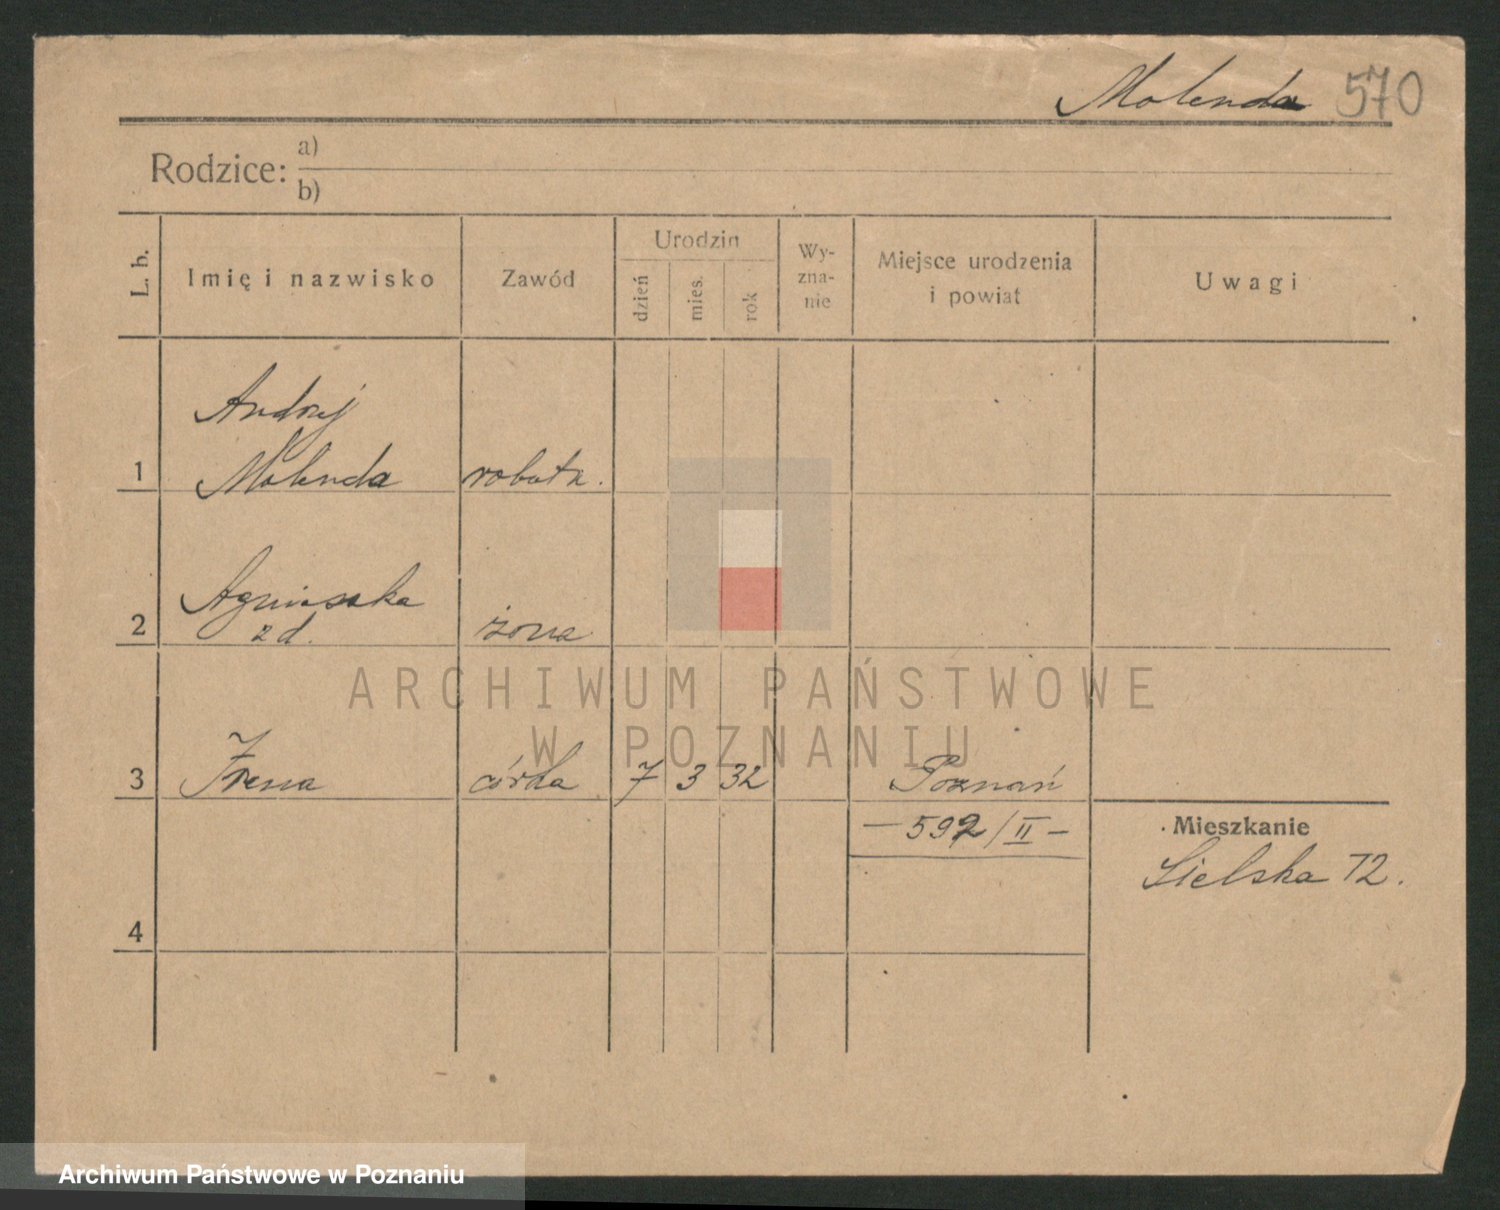 Molenda 570
Rodzice: a)
b)
L. b.
Imię i nazwisko
Zawód
Urodzin
dzień
mies.
rok
Wy-
zna-
nie
Miejsce urodzenia
i powiat
Uwagi
Andrzej
1 Molenda robotn.
Agnieszka
2 z d. żona
3 Irena córka 7 3 32 Poznań
— 592/II —
Mieszkanie
Sielska 72.
4
ARCHIWUM PAŃSTWOWE
W POZNANIU
Archiwum Państwowe w Poznaniu